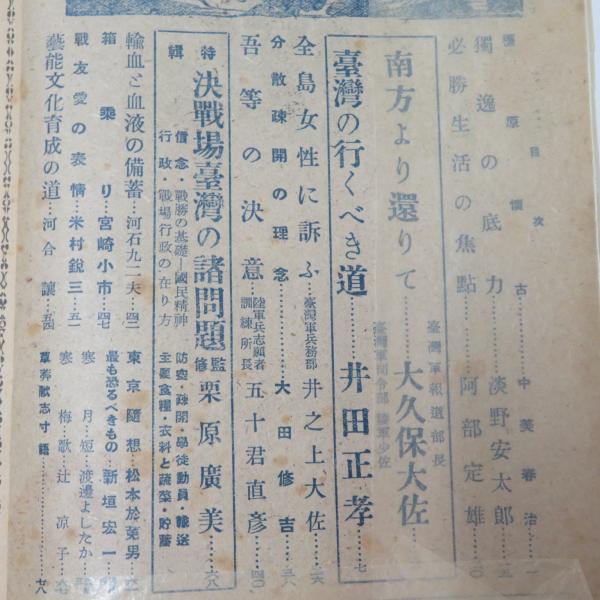 目次
獨逸の底力……淡野安太郎……五
必勝生活の焦點……阿部定雄……一〇
南方より還りて……臺灣軍報道部長 大久保大佐……
臺灣の行くべき道……臺灣軍司令部 陸軍少佐 井田正孝……七
全島女性に訴ふ……臺灣軍兵務部 井之上大佐……
分散疎開の理念……大田修吉……
吾等の決意……陸軍兵志願者訓練所長 五十君直彦……四〇
特輯 決戰場臺灣の諸問題 監修 栗原廣美……六八
信念・戰勝の基礎―國民精神
行政・戰場行政の在り方
防空・疎開・學徒動員・輸送
主要食糧・衣料と蔬菜・貯蓄
輸血と血液の備蓄……河石九二夫……四三
箱乘り……宮崎小市……四七
戰友愛の表情……米村銳三……五一
藝能文化育成の道……河合讓……五四
東京隨想……松本於菟男……
最も恐るべきもの……新垣宏一……
寒月……短……渡邊よしたか……
寒梅……歌……辻凉子……
草莽獻志寸語……七八